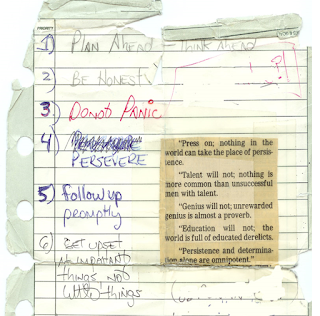 1) PLAN AHEAD - THINK AHEAD
2) BE HONEST
?!
3) DO NOT PANIC
4)
PERSEVERE
"Press on; nothing in the
world can take the place of persis-
tence.
"Talent will not; nothing is
more common than unsuccessful
men with talent.
"Genius will not; unrewarded
genius is almost a proverb.
"Education will not; the
world is full of educated derelicts.
"Persistence and determina-
tion alone are omnipotent."
5) Follow up
promptly
6) GET UPSET
IMPORTANT
things not
little things